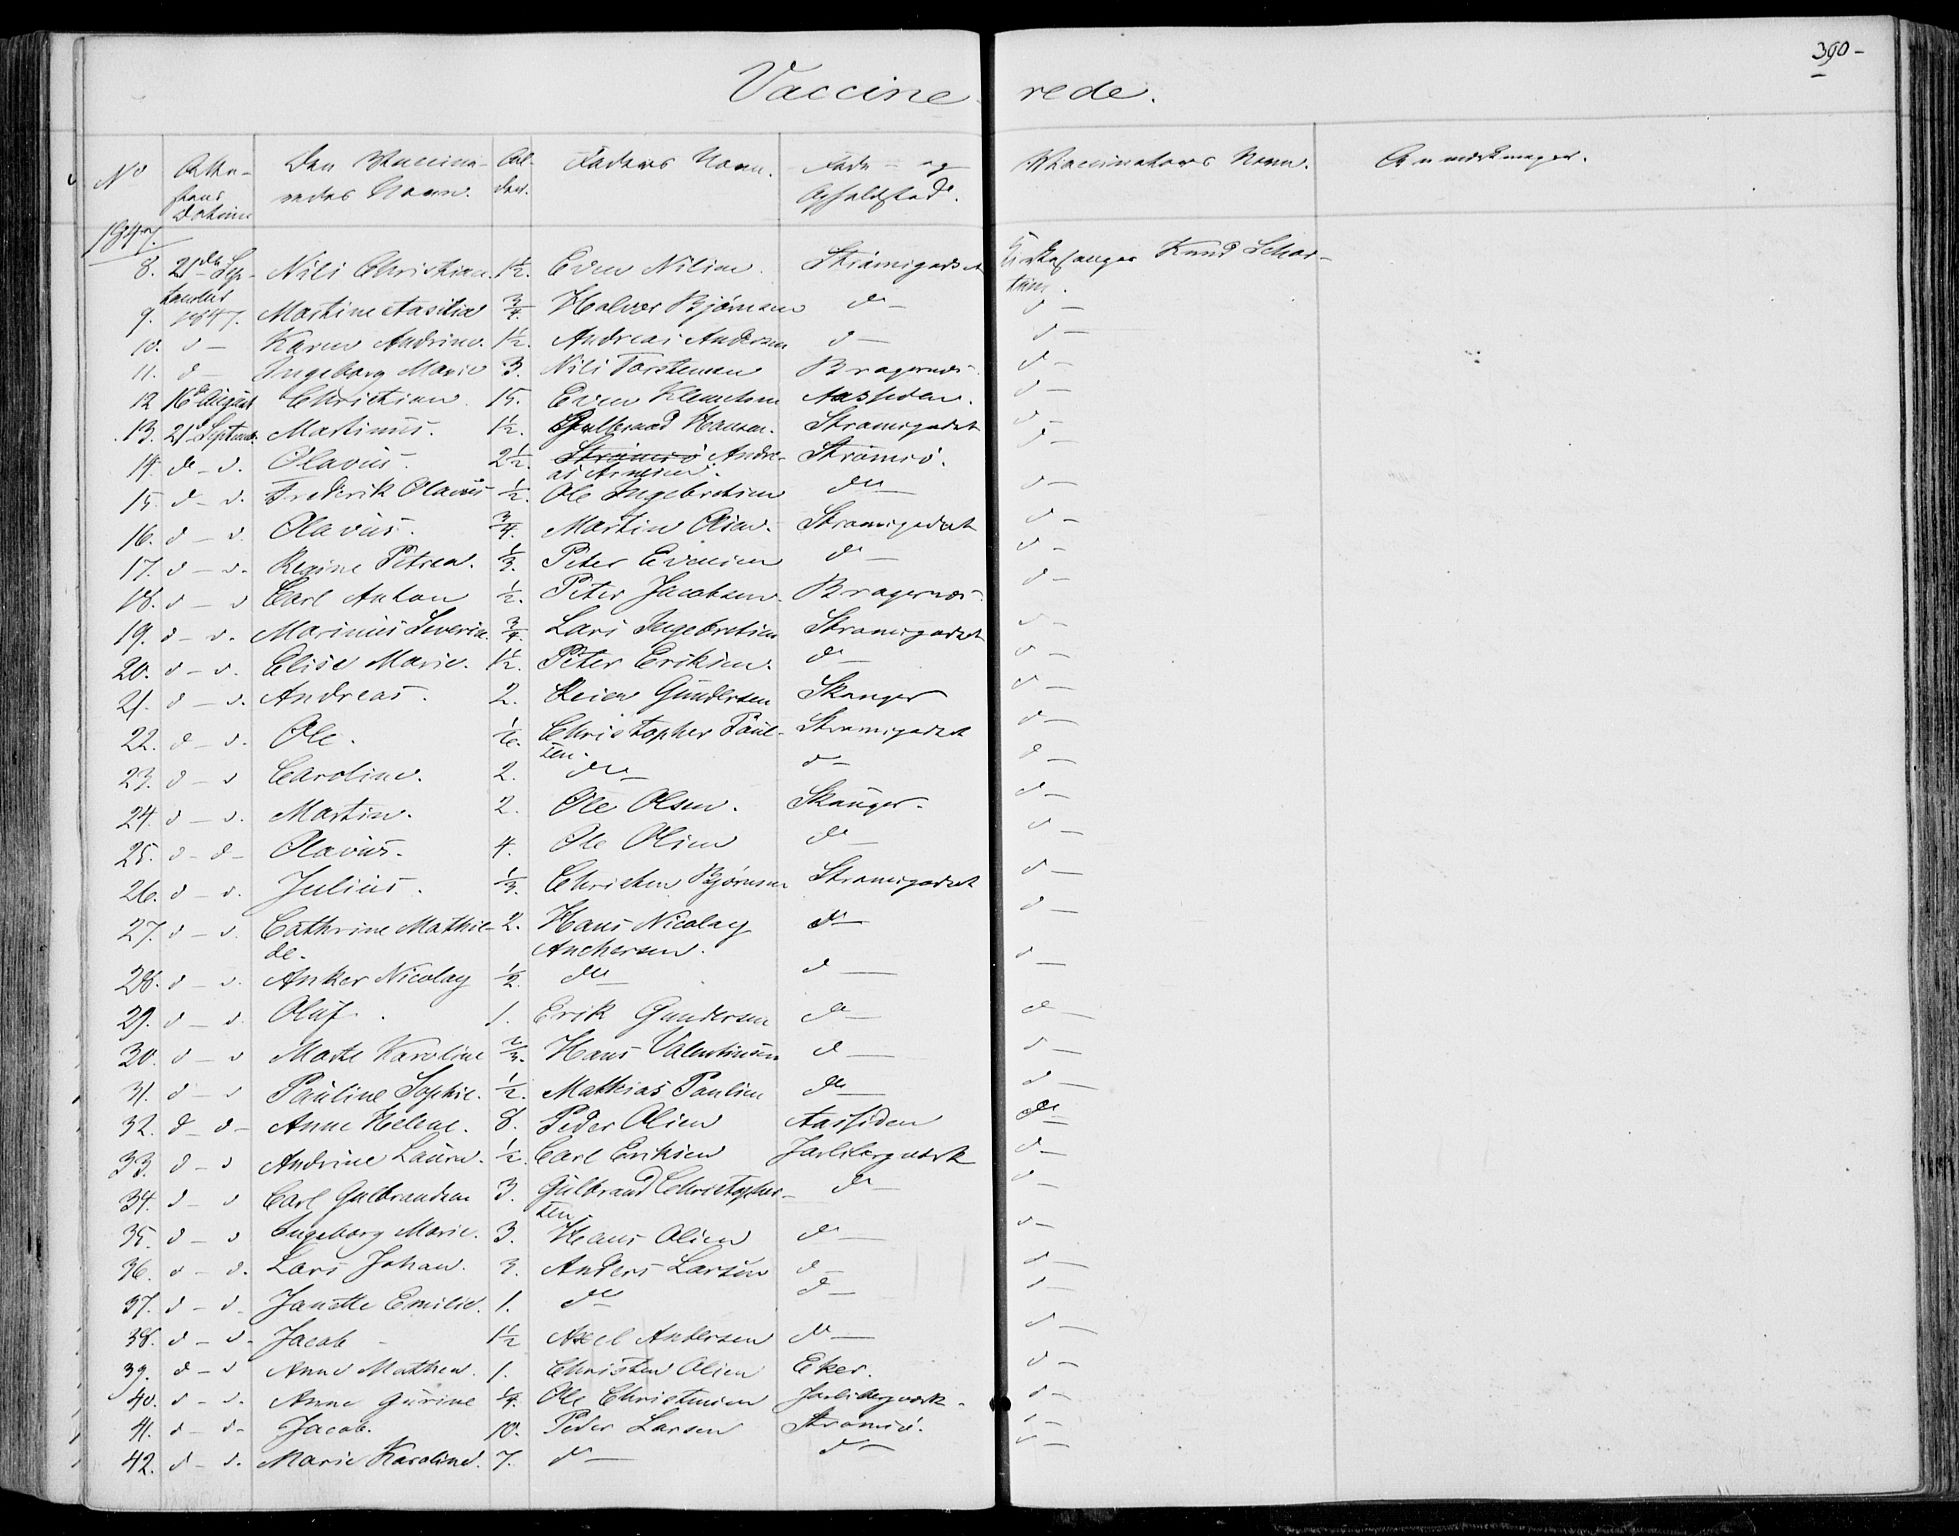 390-
Vaccine- rede.
No Atte- stens Datum Den Vaccine- redes Navn. Al- der. Faders Navn. Føde- og Opholdssted. Vaccinateurs Navn. Anmærkninger.
1847.
8. 21de Sep- Nils Christian. 1½. Even Nilsen. Strømsgodset Kirkesanger Knud Schar-
tember 1847. tum.
9. Martine Aasilia ¾. Halvor Bjørnsen do - d -
10. d - Karen Andrine. 1½. Andreas Andersen d - d -
11. d - Ingeborg Marie 3. Nils Torstensen Bragernæs. d -
12 16d August Christian. 15. Even Klemetsen Aassiden. d -
13. 21d Septembr. Martinus. 1½. Gulbrand Hansen. Strømsgodset d -
14. do - d. Olavus. 2½. Strømsø Andre- Strømsø. d -
as Arnesen.
15. d - d. Frederik Olavus ½. Ole Ingebretsen do - d -
16. d - d. Olavus. ¾. Martin Olsen. Strømsgodset d -
17. d - d. Regine Petrea. ⅓. Peter Evensen d - d -
18. d - d Carl Anton ½. Peter Jacobsen. Bragernæs. d -
19. d - d. Marinus Severin. ¾. Lars Ingebretsen Strømsgodset d -
20. d - d. Elise Marie. 1½. Peter Eriksen. d - d -
21. d - d. Andreas. 2. Reier Gundersen Skanger d -
22. d - d. Ole. ⅙. Christopher Poul- Strømsgodset d -
sen.
23. d - d Caroline. 2. do - d - d -
24. d - d. Martin. 2. Ole Olsen. Skanger. d -
25. d - d - Olavus. 4. Ole Olsen do - d -
26. d - d. Julius. ⅓. Christen Bjørnsen Strømsgodset d -
27. d - d. Cathrine Mathil- 2. Hans Nicolay do - d -
de. Anchersen.
28. d - d. Anker Nicolay ½. do - d - d -
29. d - d. Oluf. 1. Erik Gundersen do - d -
30. d - d Marte Karoline ⅔. Hans Valentinsen d - d -
31. d - d Pauline Sophie. ½. Mathias Paulsen do - d -
32. d - d - Anne Helene. 8. Peder Olsen Aassiden do -
33. d - d Andrine Laura. ½. Carl Eriksen Jarlsbergværk d -
34. d - d Carl Gulbrandsen 3. Gulbrand Christopher- do - d -
sen
35. d - d Ingeborg Marie. 3. Hans Olsen do - d -
36. d - d. Lars Johan. 3. Anders Larsen d - d -
37. d - d. Janette Emilie. 1. do d - d -
38. d - d - Jacob - 1½ Axel Andersen do - d -
39. d - d Anne Mathea. 1. Christen Olsen Eker. d -
40. d - d. Anne Gurine ¼. Ole Christensen Jarlsbergværk. d -
41. d - d. Jacob. 10. Peder Larsen Strømsø. d -
42. d - d. Marie Karoline. 7. d - d - d -